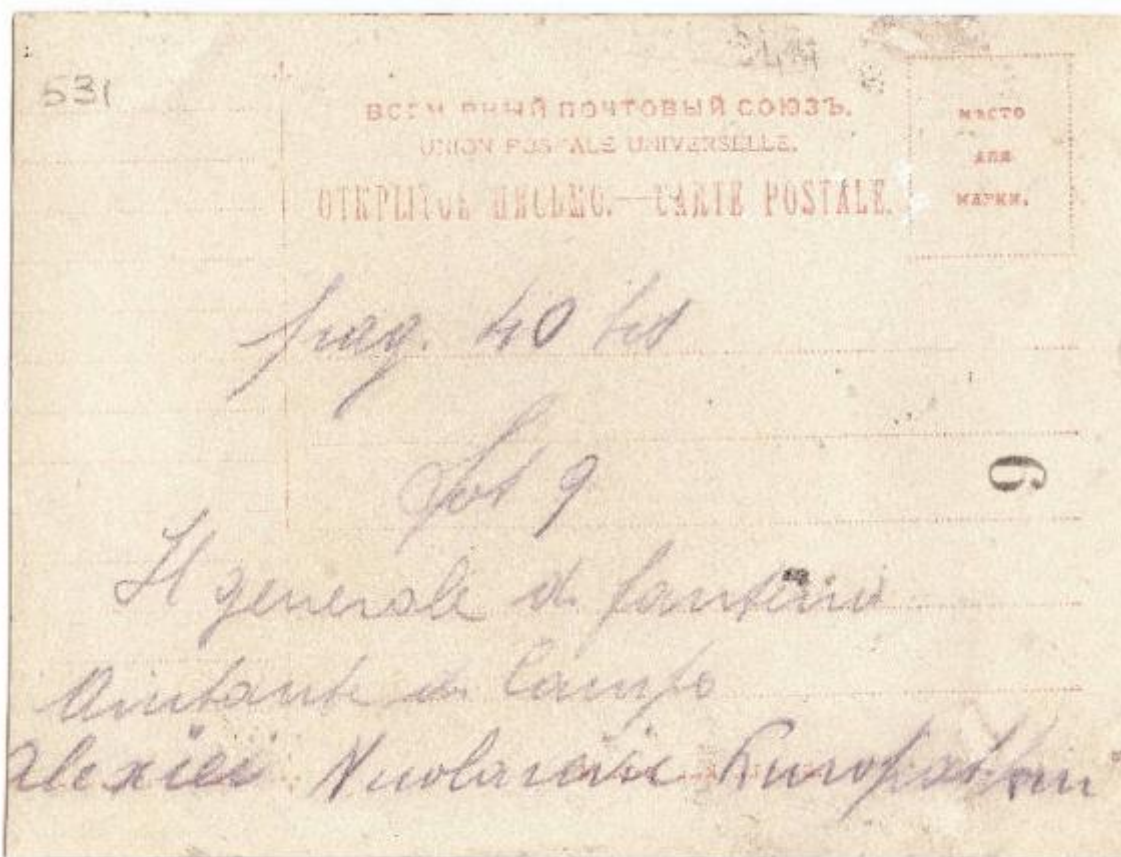 531
ВСЕМІРНЫЙ ПОЧТОВЫЙ СОЮЗЪ.
UNION POSTALE UNIVERSELLE.
ОТКРЫТОЕ ПИСЬМО.—CARTE POSTALE.
МѢСТО
ДЛЯ
МАРКИ.
pag. 40
fot 9
6
Il generale di fanteria
Aiutante di Campo
Alexiei Nicolaievic Kuropatkin